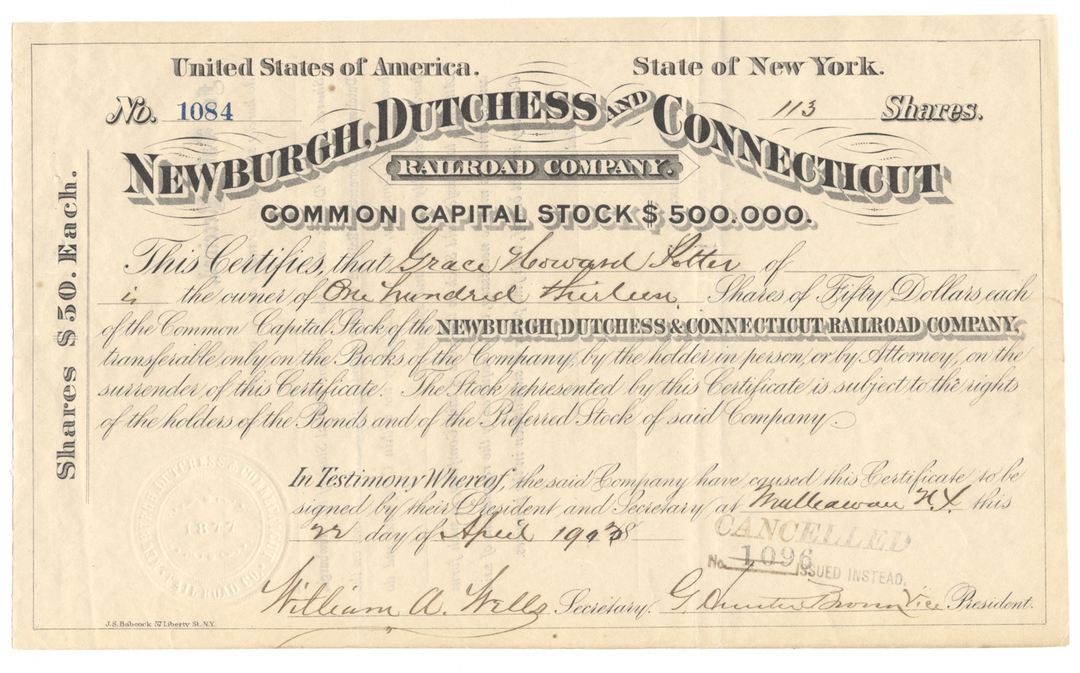 United States of America. State of New York.
No. 1084 113 Shares.
NEWBURGH, DUTCHESS AND CONNECTICUT
RAILROAD COMPANY.
COMMON CAPITAL STOCK $500.000.
Shares $50. Each.
This Certifies, that Grace Howard Potter of
is the owner of One hundred thirteen Shares of Fifty Dollars each
of the Common Capital Stock of the NEWBURGH, DUTCHESS & CONNECTICUT RAILROAD COMPANY,
transferable only on the Books of the Company, by the holder in person, or by Attorney, on the
surrender of this Certificate. The Stock represented by this Certificate is subject to the rights
of the holders of the Bonds and of the Preferred Stock of said Company.
In Testimony Whereof, the said Company have caused this Certificate to be
signed by their President and Secretary at Matteawan N.Y. this
22 day of April
CANCELLED
No. 1096 ISSUED INSTEAD.
NEWBURGH DUTCHESS & CONNECTICUT
1877
RAIL ROAD CO.
William A. Wells Secretary. G Hunter Brown Vice President.
J.S. Babcock 57 Liberty St. N.Y.